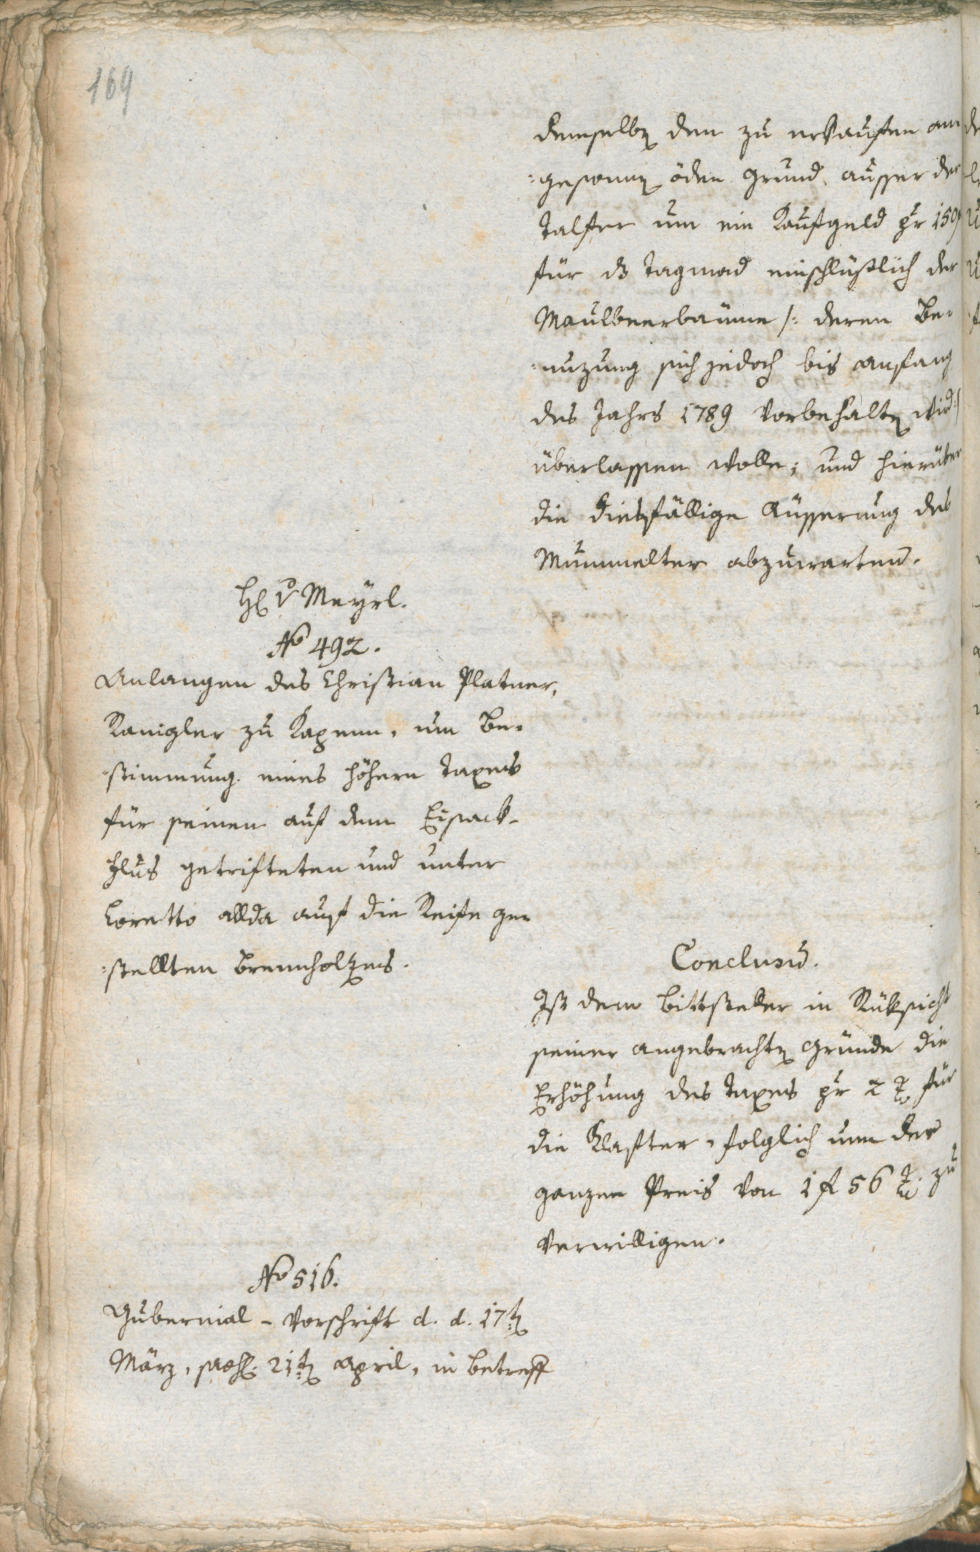 169
demselben den zu erkaufen an-
gesonnen öden Grund ausser der
Talfer um ein Kaufgeld pr 150f
für ds Tagmad einschlüßlich der
Maulbeerbäume /: deren Be-
nuzung sich jedoch bis anfang
des Jahrs 1789 vorbehalten wird :/
überlassen wolle; und hierüber
die diesfällige Äusserung des
Mummelter abzuwarten.
H. v. Meyrl.
No 492.
Anlangen des Christian Platner,
Ranigler zu Kapenn, um Be-
stimmung eines höhern Taxes
für seinen auf dem Eisack-
Flus getrifteten und unter
Loretto allda auf die Reife ge-
stellten Brennholzes.
Conclusum.
Ist dem Bittsteller in Rüksicht
seiner angebrachten Gründe die
Erhöhung des Taxes pr 2 xr für
die Klafter, folglich um der
ganzen Preis von 1 f 56 xr. zu
verwilligen.
No 516.
Gubernial-Vorschrift d. d. 17ten
März, 21ten April, in betreff